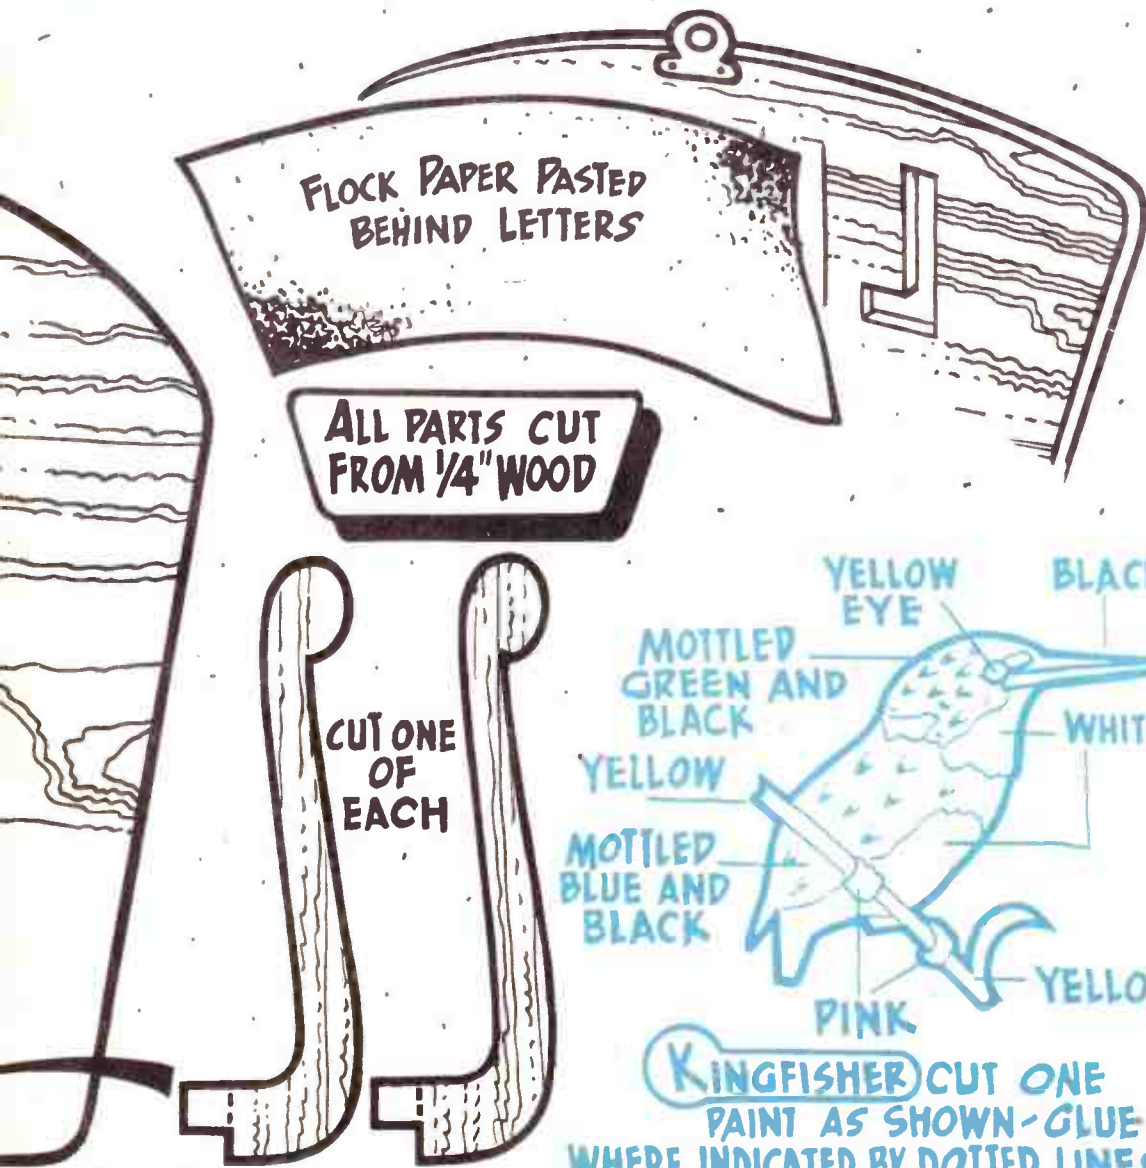 FLOCK PAPER PASTED
BEHIND LETTERS
ALL PARTS CUT
FROM 1/4" WOOD
CUT ONE
OF
EACH
YELLOW
EYE
BLAC
MOTTLED
GREEN AND
BLACK
WHIT
YELLOW
MOTTLED
BLUE AND
BLACK
YELLO
PINK
KINGFISHER CUT ONE
PAINT AS SHOWN-GLUE
WHERE INDICATED BY DOTTED LINE